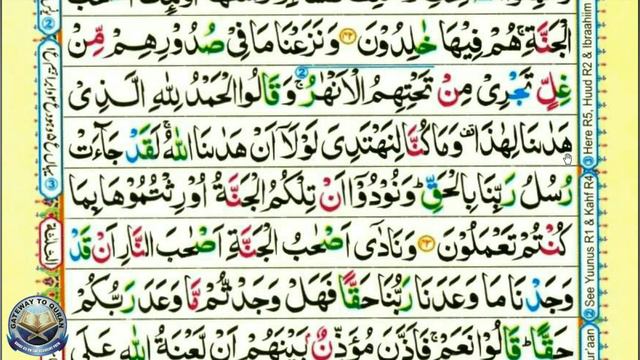 الْجَنَّةِ ۚ هُمْ فِيْهَا خٰلِدُوْنَ ﴿۴۲﴾ وَنَزَعْنَا مَا فِيْ صُدُوْرِهِمْ مِّنْ
غِلٍّ تَجْرِيْ مِنْ تَحْتِهِمُ الْاَنْهٰرُ ۚ وَقَالُوا الْحَمْدُ لِلّٰهِ الَّذِيْ
هَدٰىنَا لِهٰذَا ۫ وَمَا كُنَّا لِنَهْتَدِيَ لَوْلَاۤ اَنْ هَدٰىنَا اللّٰهُ ۚ لَقَدْ جَآءَتْ
رُسُلُ رَبِّنَا بِالْحَقِّ ؕ وَنُوْدُوْۤا اَنْ تِلْكُمُ الْجَنَّةُ اُوْرِثْتُمُوْهَا بِمَا
كُنْتُمْ تَعْمَلُوْنَ ﴿۴۳﴾ وَنَادٰۤى اَصْحٰبُ الْجَنَّةِ اَصْحٰبَ النَّارِ اَنْ قَدْ
وَجَدْنَا مَا وَعَدَنَا رَبُّنَا حَقًّا فَهَلْ وَجَدْتُّمْ مَّا وَعَدَ رَبُّكُمْ
حَقًّا ؕ قَالُوْا نَعَمْ ۚ فَاَذَّنَ مُؤَذِّنٌۢ بَيْنَهُمْ اَنْ لَّعْنَةُ اللّٰهِ عَلَى
③ Here R5, Huud R2 & Ibraahiim
② See Yuunus R1 & Kahf R4
GATEWAY TO QURAN